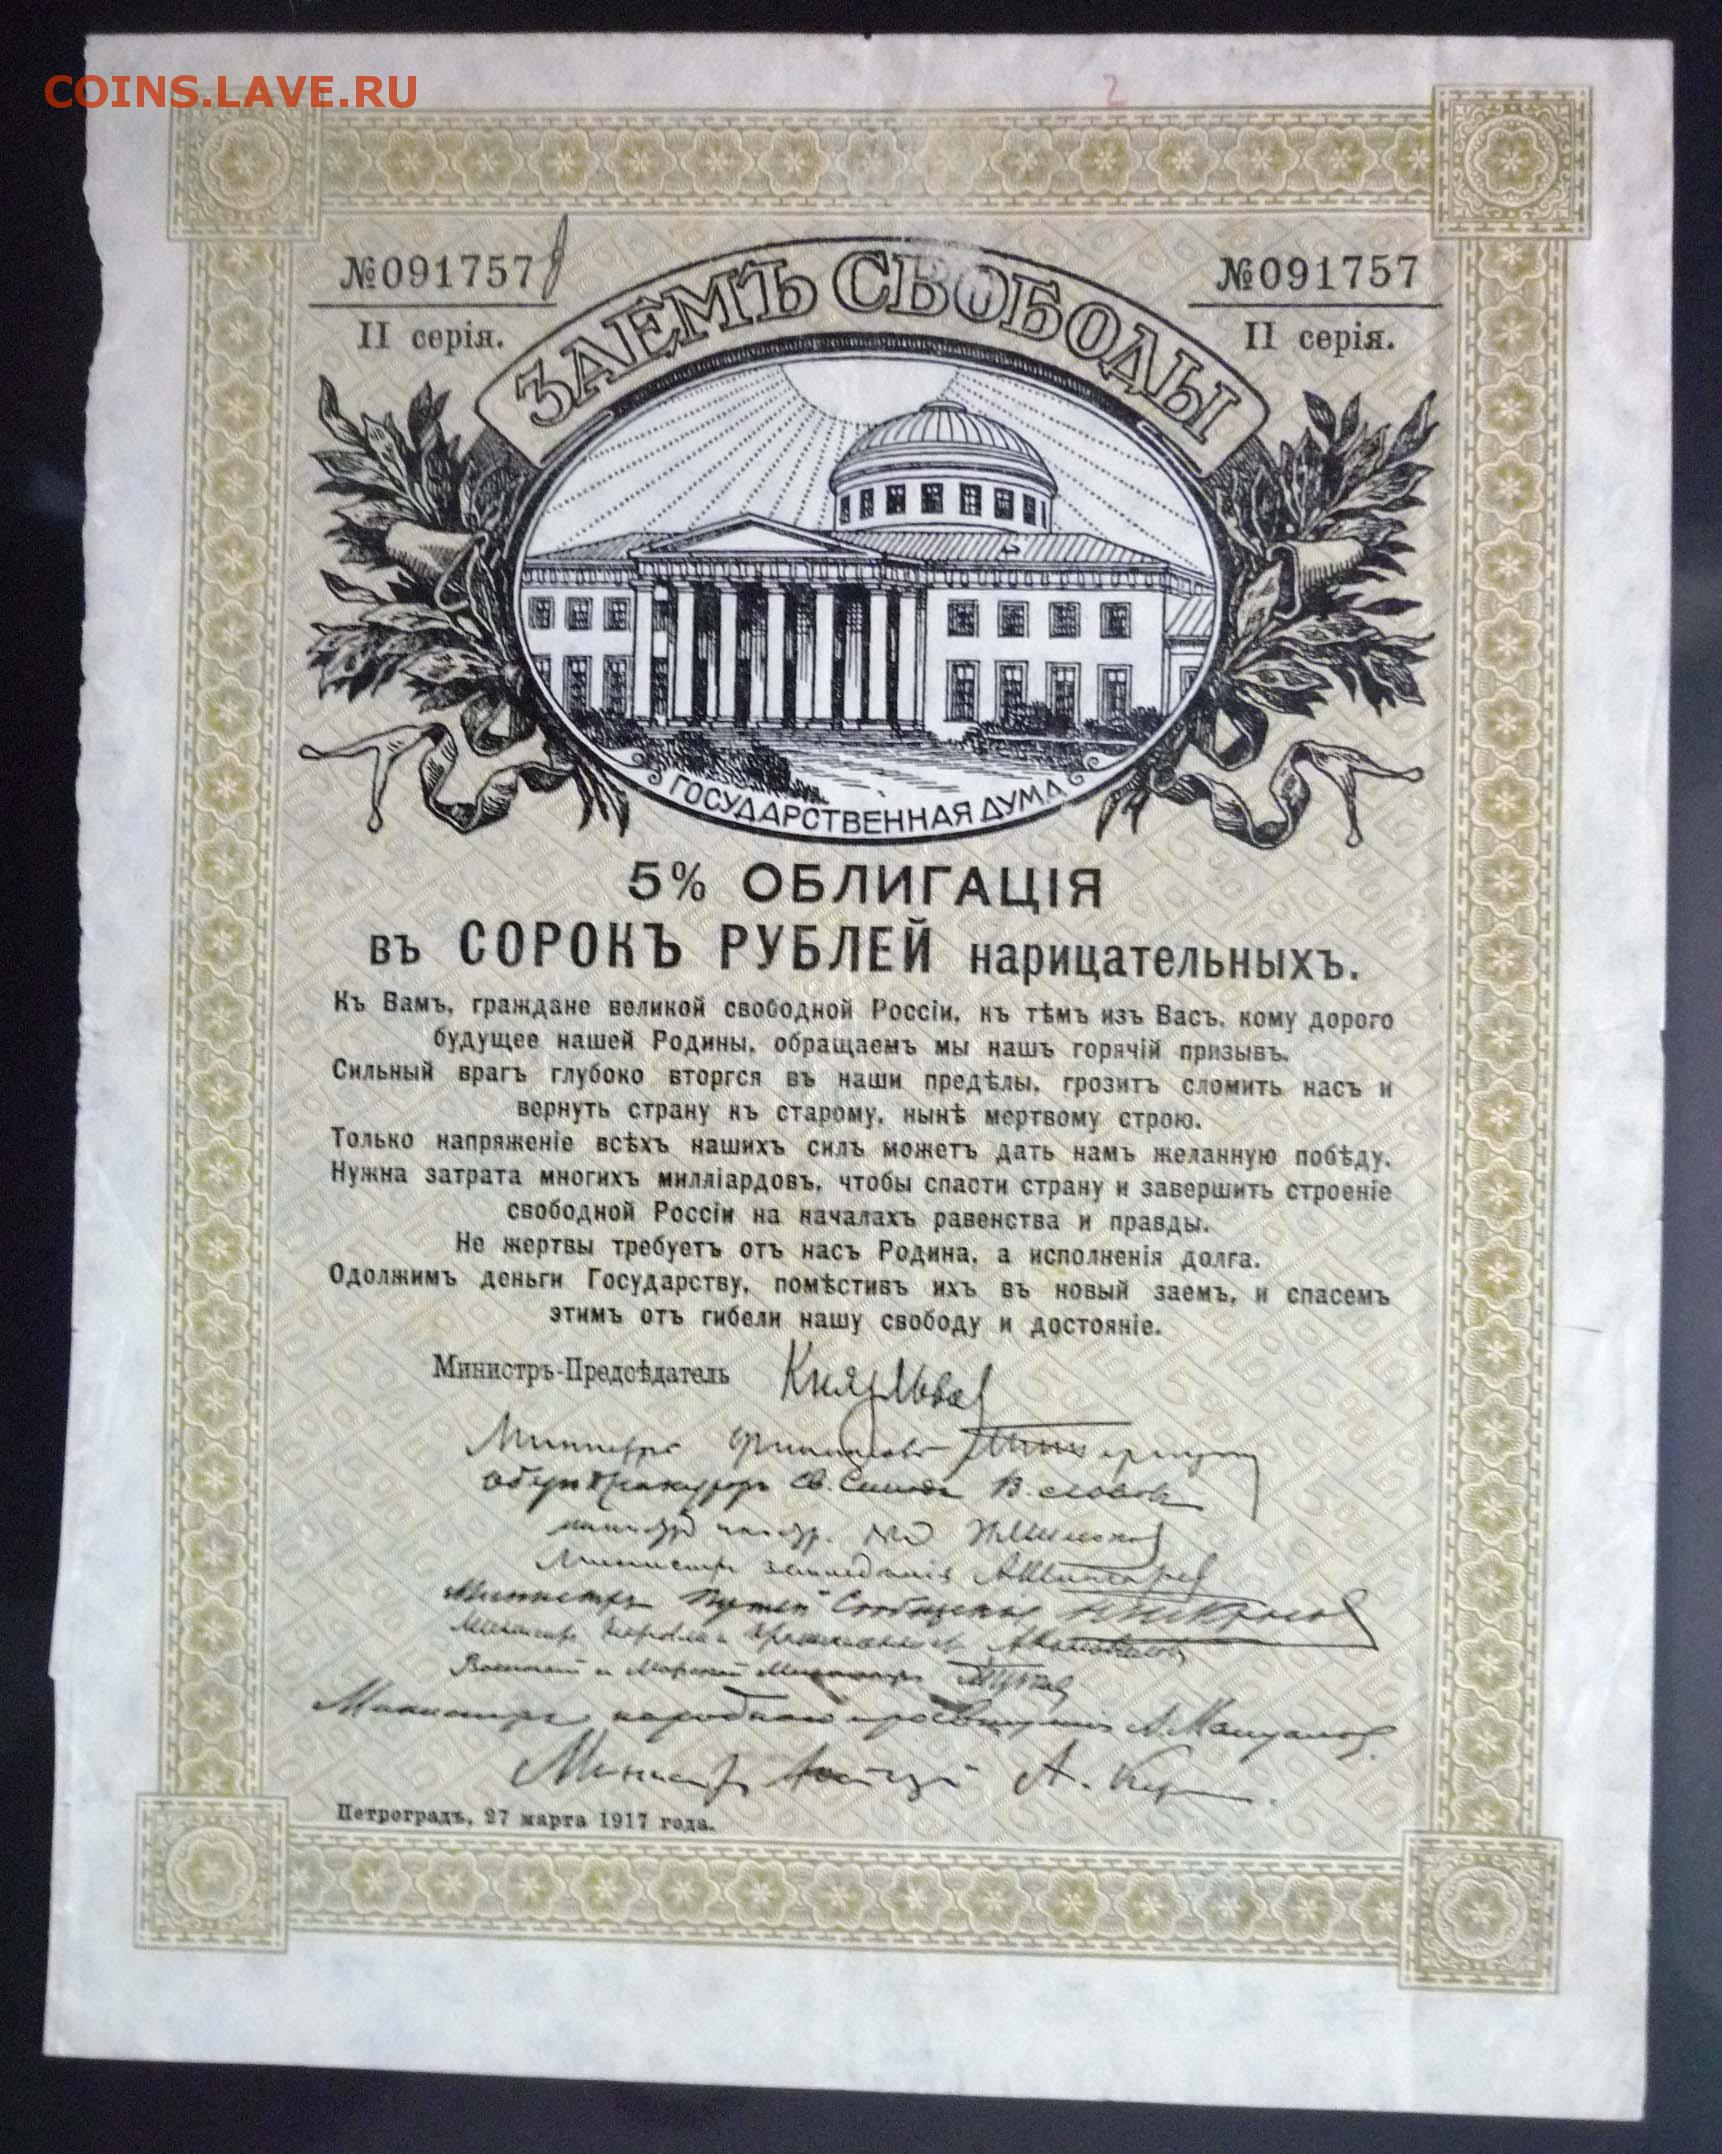 COINS.LAVE.RU
2
№091757
№091757
II серія.
II серія.
ЗАЕМЪ СВОБОДЫ
ГОСУДАРСТВЕННАЯ ДУМА
5% ОБЛИГАЦІЯ
въ СОРОКЪ РУБЛЕЙ нарицательныхъ.
Къ Вамъ, граждане великой свободной Россіи, къ тѣмъ изъ Васъ, кому дорого
будущее нашей Родины, обращаемъ мы нашъ горячій призывъ.
Сильный врагъ глубоко вторгся въ наши предѣлы, грозитъ сломить насъ и
вернуть страну къ старому, нынѣ мертвому строю.
Только напряженіе всѣхъ нашихъ силъ можетъ дать намъ желанную побѣду.
Нужна затрата многихъ милліардовъ, чтобы спасти страну и завершить строеніе
свободной Россіи на началахъ равенства и правды.
Не жертвы требуетъ отъ насъ Родина, а исполненія долга.
Одолжимъ деньги Государству, помѣстивъ ихъ въ новый заемъ, и спасемъ
этимъ отъ гибели нашу свободу и достояніе.
Министръ-Предсѣдатель Князь Львов
Министръ Финансовъ
Оберъ Прокуроръ Св. Синода В. Львовъ
Министръ земледѣлія А Шингарев
Министръ Путей Сообщенія Н Некрасов
Министръ Торговли и Промышленности А Коновалов
Военный и Морской Министръ
Министръ народнаго просвѣщенія А. Мануйлов.
Министръ Юстиціи А. Кер
Петроградъ, 27 марта 1917 года.